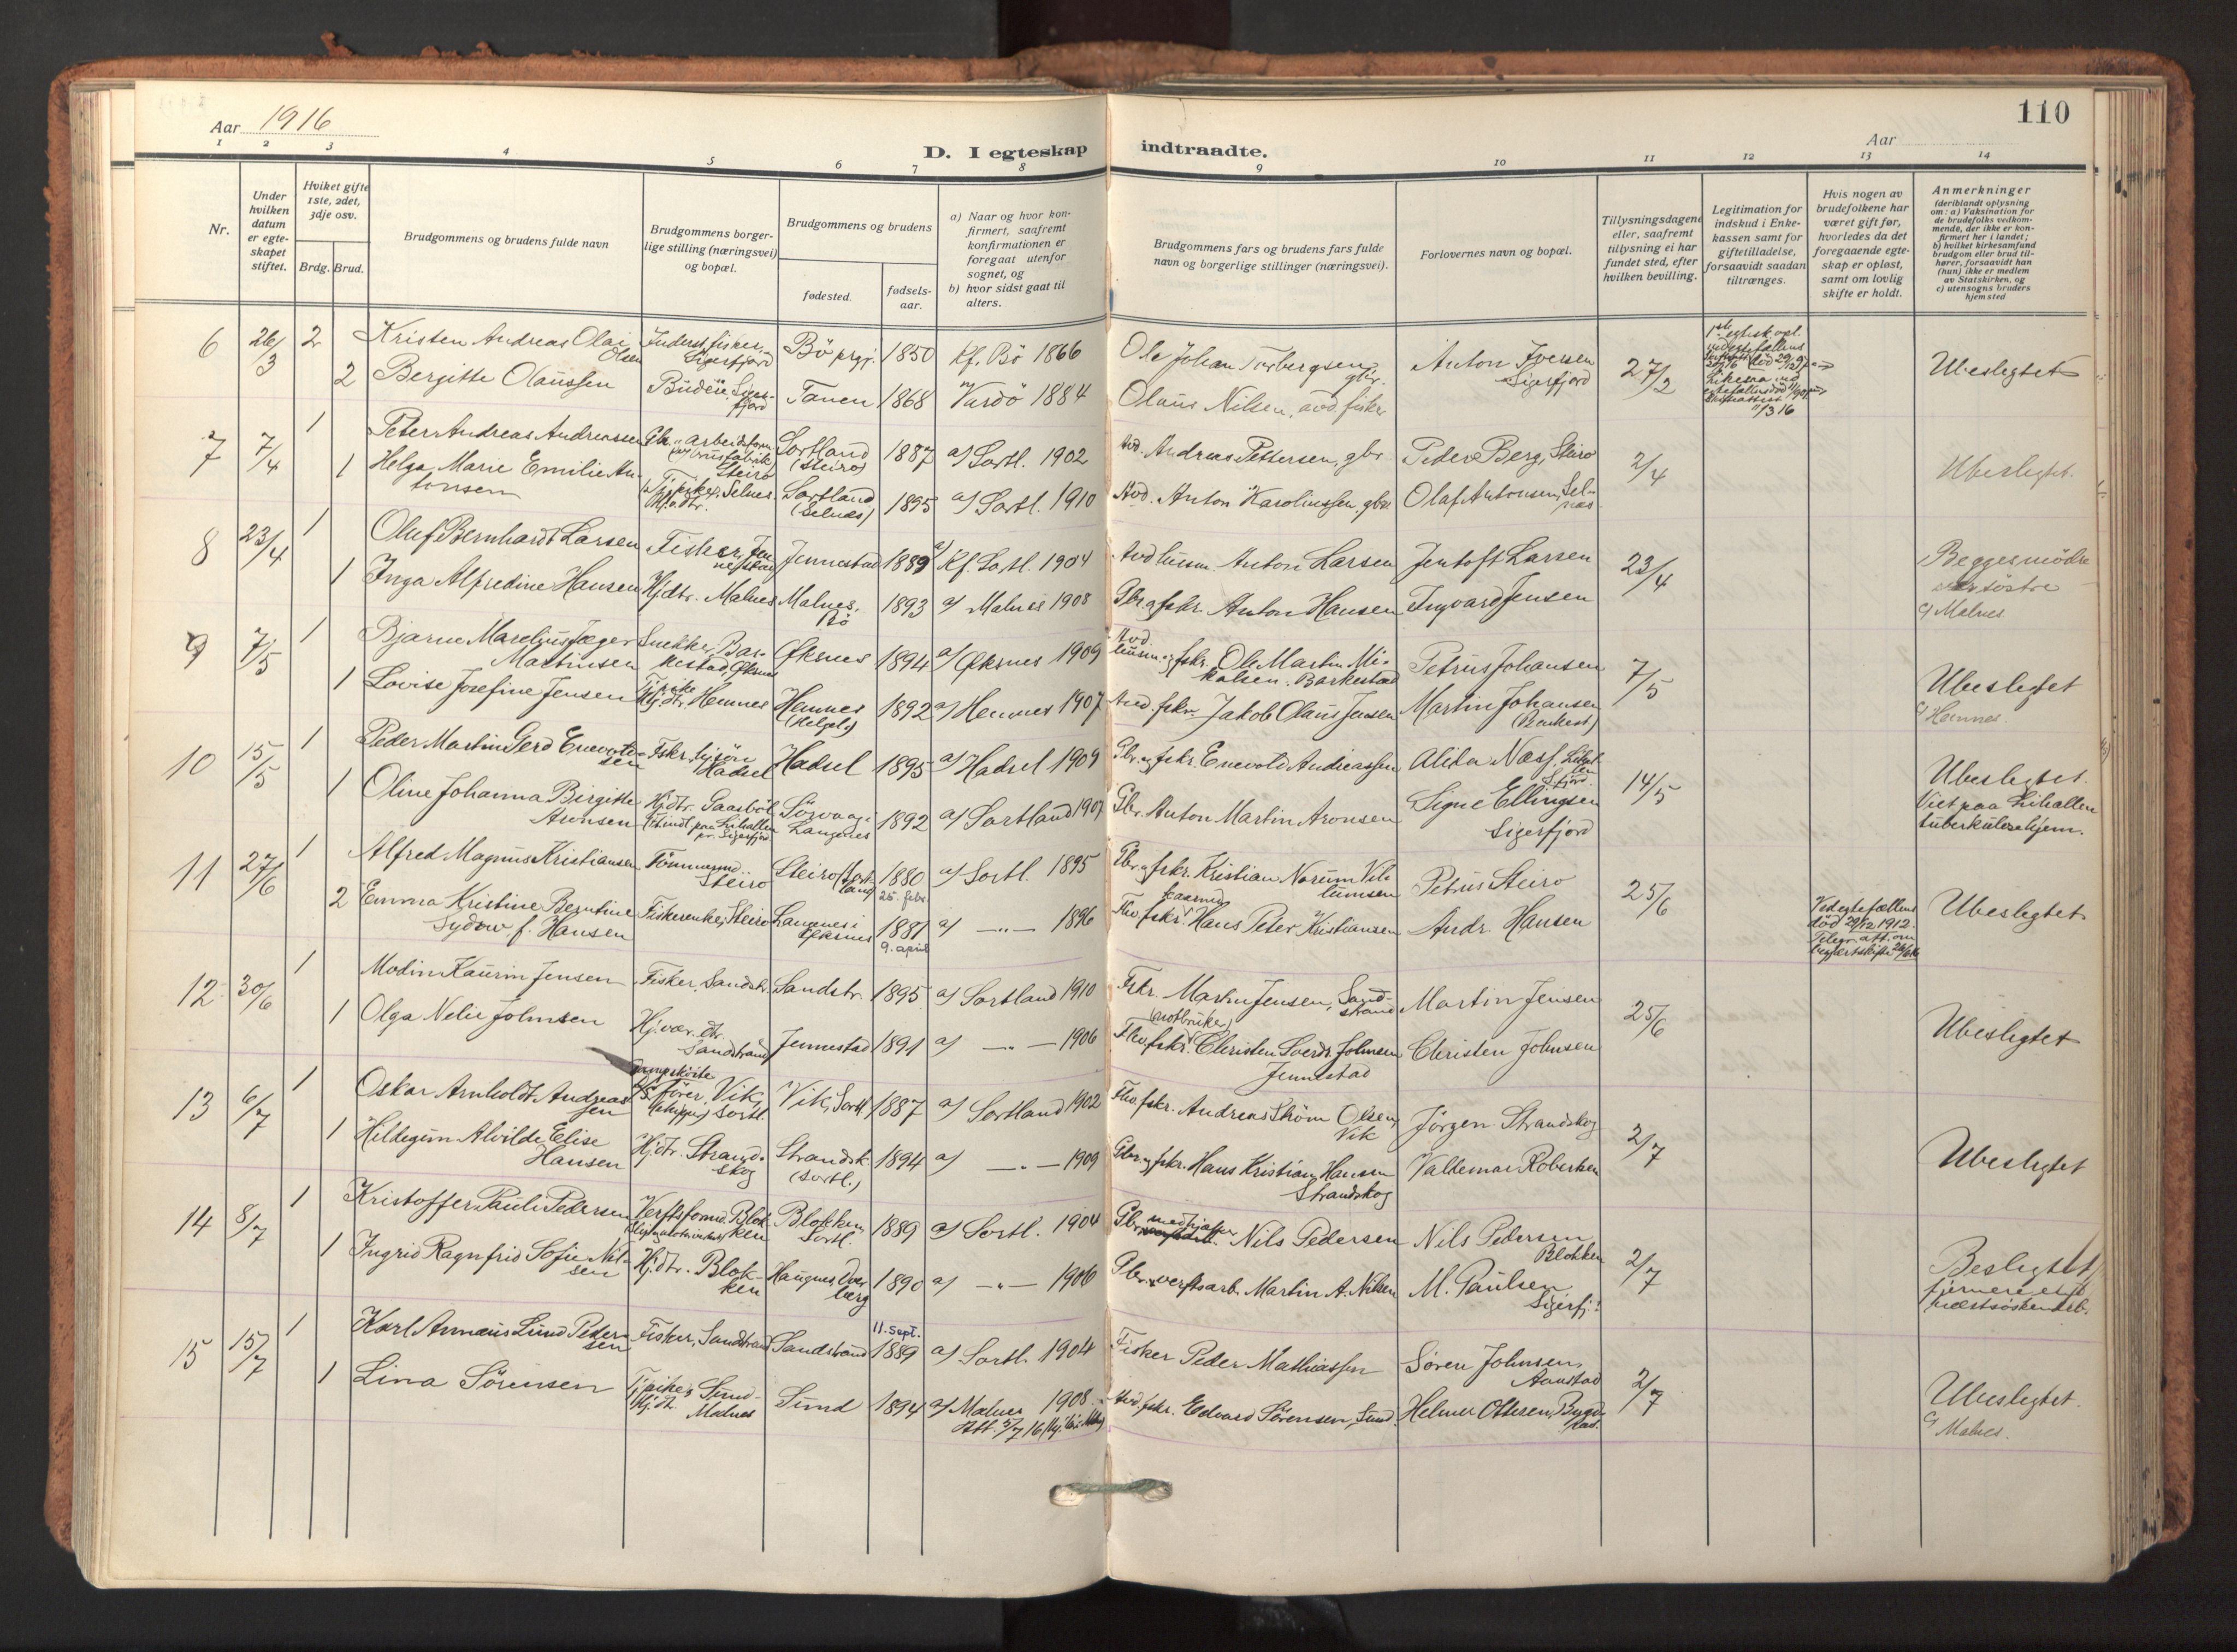 Aar 1916
110
Aar
D. I egteskap indtraadte.
1 2 3 4 5 6 7 8 9 10 11 12 13 14
Nr.
Under hvilken datum er egteskapet stiftet.
Hviket gifte 1ste, 2det, 3dje osv.
Brdg. Brud.
Brudgommens og brudens fulde navn
Brudgommens borgerlige stilling (næringsvei) og bopæl.
Brudgommens og brudens
fødested.
fødselsaar.
a) Naar og hvor konfirmert, saafremt konfirmationen er foregaat utenfor sognet, og
b) hvor sidst gaat til alters.
Brudgommens fars og brudens fars fulde navn og borgerlige stillinger (næringsvei).
Forlovernes navn og bopæl.
Tillysningsdagene eller, saafremt tillysning ei har fundet sted, efter hvilken bevilling.
Legitimation for indskud i Enkekassen samt for giftetilladelse, forsaavidt saadan tiltrænges.
Hvis nogen av brudefolkene har været gift før, hvorledes da det foregaaende egteskap er opløst, samt om lovlig skifte er holdt.
Anmerkninger (deriblandt oplysning om: a) Vaksination for de brudefolks vedkommende, der ikke er konfirmert her i landet; b) hvilket kirkesamfund brudgom eller brud tilhører, forsaavidt han (hun) ikke er medlem av Statskirken, og c) utensogns bruders hjemsted
6 26/3 2 Kristen Andreas Olai Olsen Inderst, fisker, Sigerfjord Bö prgj. 1850 Kf. Bö 1866 Ole Johan Torbergsen gbr. Anton Iversen Sigerfjord 27/2 Ubeslegtet
2 Bergitte Olaussen Budeie Sigerfjord Tanen 1868 Vardö 1884 Olaus Nilsen, avd. fisker
7 7/4 1 Peter Andreas Andreassen Steiro Sortland (Steiro) 1887 a) Sortl. 1902 Avd. Andreas Pettersen, gbr. Peder Berg, Steiro 2/4 Ubeslegtet.
1 Helga Marie Emilie Antonsen Selnes Sortland (Selnes) 1895 a) Sortl. 1910 Avd. Anton Karolinssen, gbr. Olaf Antonsen, Selnæs
8 23/4 1 Oluf Bernhardt Larsen Fisker, Jennestad Jennestad 1889 a) Kf. Sortl. 1904 Avd husm. Anton Larsen Jentoft Larsen 23/4 Begges mödre er söstre
1 Inga Alfredine Hansen Hjdtr. Malnes Malnes, Bö 1893 a) Malnes 1908 Gbr. og fskr. Anton Hansen Ingvard Jensen c) Malnes.
9 7/5 1 Bjarne Marelius Jæger Martinsen Snekker, Barkestad, Øksnes Øksnes 1894 a) Øksnes 1909 Avd. husm. og fskr. Ole Martin Mikalsen. Barkestad Petrus Johansen 7/5 Ubeslegtet
1 Lovise Josefine Jensen Hjdtr. Hemnes Hemnes (Helgel.) 1892 a) Hemnes 1907 Avd. fskr. Jakob Olaus Jensen Martin Johansen (Barkest) c) Hemnes.
10 15/5 1 Peder Martin Gerd Enevoldsen Fskr. Hadsel Hadsel 1895 a) Hadsel 1909 Gbr. og fskr. Enevold Andreassen Alida Næss, 14/5 Ubeslegtet.
1 Oline Johanna Birgitte Aronsen Hjdtr. Gaasböl Sörvaag i Langenes 1892 a) Sortland 1907 Gbr. Anton Martin Aronsen Signe Ellingsen Sigerfjord Viet paa Lihallen tuberkulosehjem.
11 27/6 1 Alfred Magnus Kristiansen Tömmermd. Steiro Steiro (Sortland) 1880 25. febr. a) Sortl. 1895 Gbr. og fskr. Kristian Norum Villumsen Petrus Steiro 25/6 Ved egtefællens död 29/12 1912. Ubeslegtet
2 Emma Kristine Berntine Sydow f. Hansen Fiskerenke, Steiro Langnes i Øksnes 1881 9. april a) —„— 1896 Fhv. fskr. Hans Peter Kristiansen Andr. Hansen
12 30/6 1 Modin Kaurin Jensen Fisker, Sandstr. Sandstr. 1895 a) Sortland 1910 Fskr. Martin Jensen, Sandstrand Martin Jensen 25/6 Ubeslegtet
1 Olga Nelie Johnsen Hj.vær. dtr. Sandstrand Jennestad 1891 a) —„— 1906 (notbruker) Fhv. fskr. Christen Sverdr. Johnsen Jennestad Christen Johnsen
13 6/7 1 Oskar Arnholdt Andreassen förer, Vik, Sortl. Vik, Sortl 1887 a) Sortland 1902 Fhv. fskr. Andreas Ström Olsen Vik Jörgen Strandskog 2/7 Ubeslegtet
1 Hildegun Alvilde Elise Hansen Hjdtr. Strandskog Strandsk. (Sortl.) 1894 a) —„— 1909 Gbr. og fskr. Hans Kristian Hansen Strandskog Valdemar Robertsen
14 8/7 1 Kristoffer Pauli Pedersen Verftsformd. Blokken Blokken Sortl. 1889 a) Sortl. 1904 Gbr. Nils Pedersen Nils Pedersen Blokken 2/7 Beslegtet, fjernere end næstsöskenbarb.
1 Ingrid Ragnfrid Sofie Nilsen Hj.dtr. Blokken Haugnes Dverberg 1890 a) —„— 1906 Gbr. verftsarb. Martin A. Nilsen M. Paulsen Sigerfj.
15 15/7 1 Karl Annæus Lund Pedersen Fisker, Sandstrand Sandstrand 11. Sept. 1889 a) Sortl. 1904 Fisker Peder Mathiassen Sören Johnsen, Aanstad 2/7 Ubeslegtet.
1 Lina Sörensen Tjpike, Hj.dt. Sund-Malnes Sund 1894 a) Malnes 1908. Att. 5/7 16 Avd. fskr. Edvard Sörensen, Sund. Helmer Ottesen, c) Malnes.